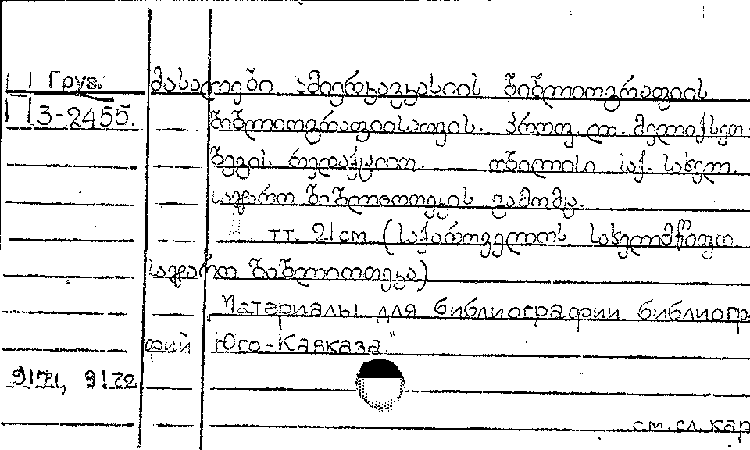 Груз. მასალები ამიერკავკასიის ბიბლიოგრაფიის
3-2455. ბიბლიოგრაფიისათვის. პროფ. ლ. მელიქსეთ
ბეგის რედაქციით. თბილისი საქ. სახელ.
საჯარო ბიბლიოთეკის გამოცემა.
тт. 21 см (საქართველოს სახელმწიფო
საჯარო ბიბლიოთეკა)
Материалы для библиографии библиогр
фий Юго-Кавказа"
9171, 9172
см. сл. кар